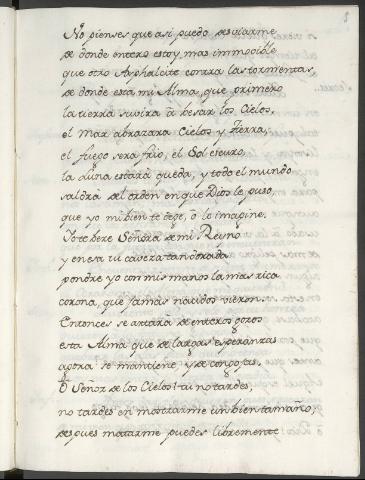 8
No pienses que asi puedo desviarme
de donde entero estoy, mas immobible
que otro Asphalcite contra las tormentas,
de donde esta mi Alma, que primero
la tierra subira à besar los Cielos,
el Mar abrazara Cielos y tierra,
el fuego sera frio, el Sol escuro,
la Luna estara queda, y todo el mundo
saldrà del orden en que Dios le puso,
que yo mi bien te deje, ò le imagine.
Yo te hare Señora de mi Reyno
y en esta tu caveza tan dorada
pondre yo con mis manos la mas rica
corona, que jamas nacidos vieron.
Entonces se artarà de enteros gozos
esta Alma que de largas esperanzas
agora se mantiene, y de congojas.
O Señor de los Cielos! tu no tardes,
no tardes en mostrarme un bien tamaño,
despues matarme puedes libremente